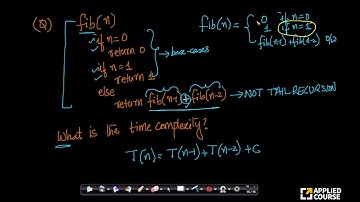 (Q) fib(n)
if n=0
return 0
if n=1
return 1
else
return fib(n-1)+fib(n-2)
base-cases
fib(n) = { 0 if n=0
1 if n=1
fib(n-1)+fib(n-2) o/w
NOT TAIL RECURSION
What is the time complexity?
T(n) = T(n-1)+T(n-2)+C
APPLIED
COURSE